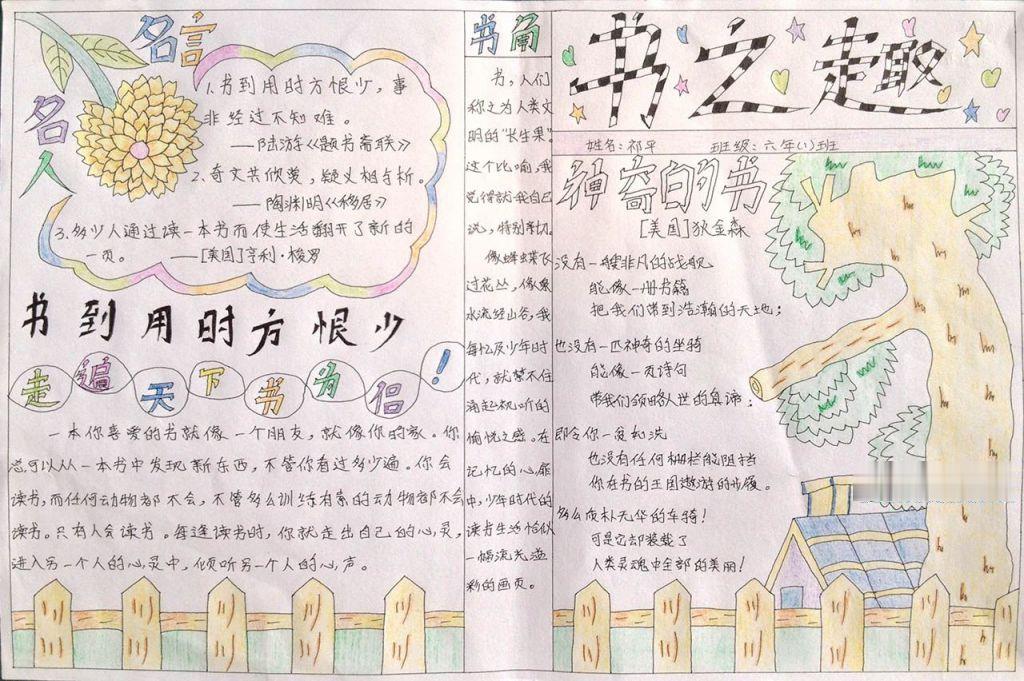 名人
名言
1.书到用时方恨少，事
非经过不知难。
——陆游《题书斋联》
2、奇文共欣赏，疑义相与析。
——陶渊明《移居》
3.多少人通过读一本书而使生活翻开了新的
一页。 ——[美国]亨利·梭罗
书到用时方恨少
走遍天下书为侣！
一本你喜爱的书就像一个朋友，就像你的家。你
总可以从一本书中发现新东西，不管你看过多少遍。你会
读书，而任何动物都不会，不管多么训练有素的动物都不会
读书。只有人会读书。每逢读书时，你就走出自己的心灵，
进入另一个人的心灵中，倾听另一个人的心声。
书角
书，人们
称之为人类文
明的"长生果"。
这个比喻，我
觉得就我自己
说，特别亲切。
像蝴蝶飞
过花丛，像泉
水流经山谷，我
每忆及少年时
代，就禁不住
涌起视听的
愉悦之感。在
记忆的心扉
中，少年时代的
读书生活恰似
一幅流光溢
彩的画页。
书之趣
姓名：祁平 班级：六年(1)班
神奇的书
[美国]狄金森
没有一艘非凡的战舰
能像一册书籍
把我们带到浩瀚的天地；
也没有一匹神奇的坐骑
能像一页诗句
带我们领略人世的真谛；
即令你一贫如洗
也没有任何栅栏能阻挡
你在书的王国遨游的步履。
多么质朴无华的车骑！
可是它却装载了
人类灵魂中全部的美丽！